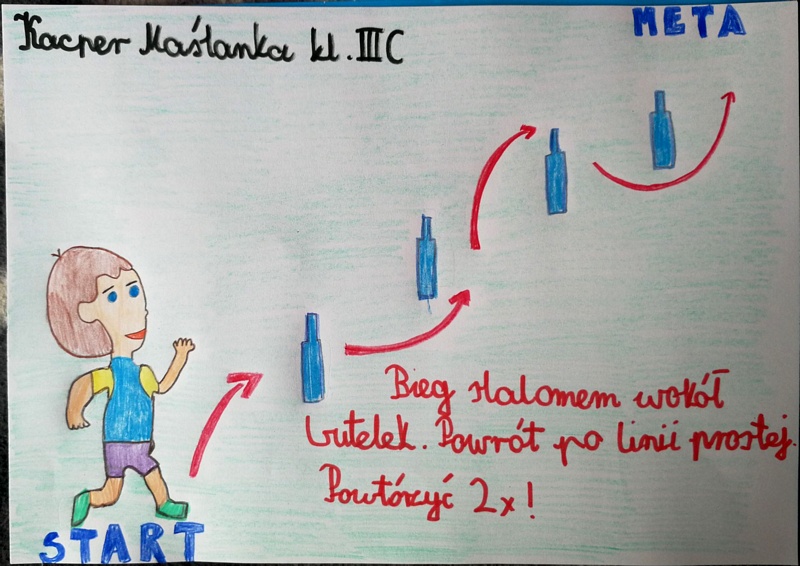 Kacper Maślanka kl. III C
META
Bieg slalomem wokół
butelek. Powrót po linii prostej.
Powtórzyć 2x!
START